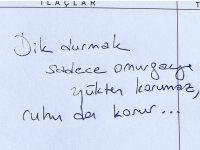 İLAÇLAR
Dik durmak
sadece omurgayı
yükten korumaz,
ruhu da korur...